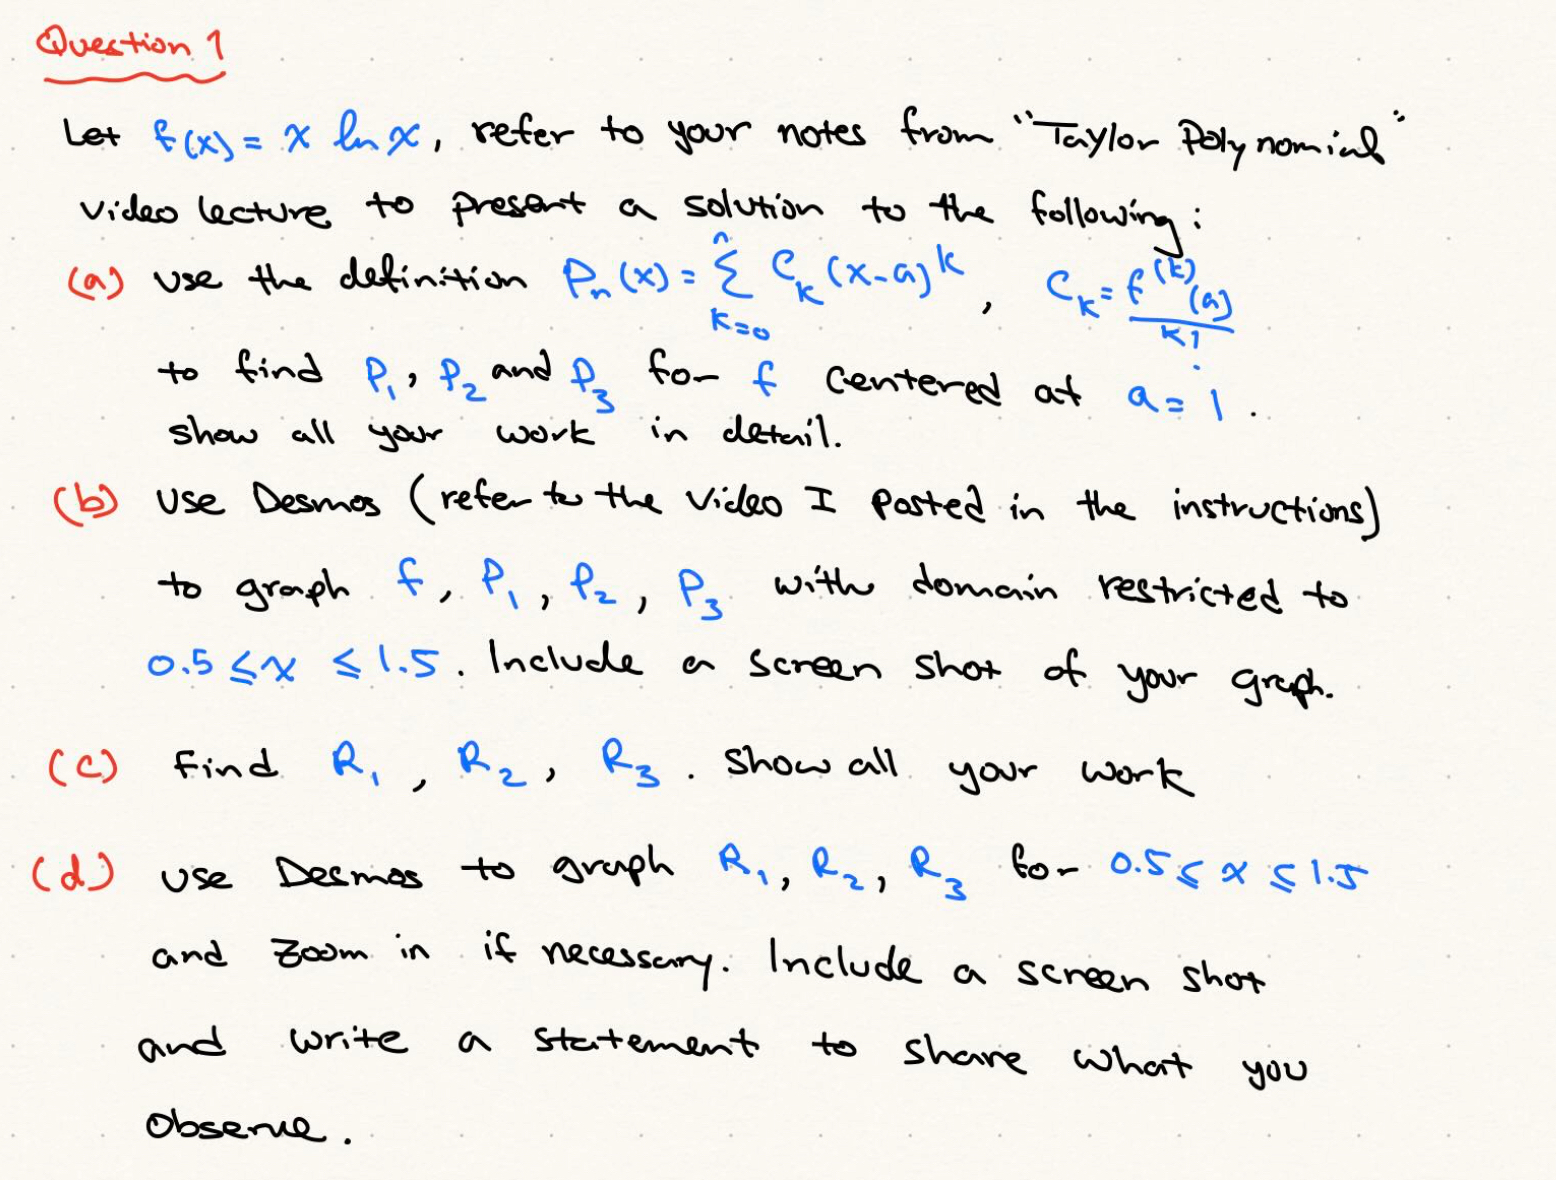 Question 1
Let f(x) = x ln x, refer to your notes from "Taylor Polynomial"
video lecture to present a solution to the following:
(a) use the definition Pₙ(x) = ∑_{k=0}^{n} C_k (x-a)^k, C_k = f^(k)(a)/k!
to find P₁, P₂ and P₃ for f centered at a = 1.
show all your work in detail.
(b) Use Desmos (refer to the video I posted in the instructions)
to graph f, P₁, P₂, P₃ with domain restricted to
0.5 ≤ x ≤ 1.5. Include a screen shot of your graph.
(c) Find R₁, R₂, R₃. Show all your work
(d) Use Desmos to graph R₁, R₂, R₃ for 0.5 ≤ x ≤ 1.5
and zoom in if necessary. Include a screen shot
and write a statement to share what you
observe.